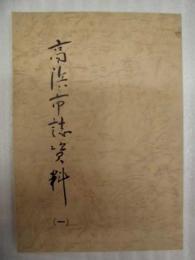 高浜市誌資料
(一)